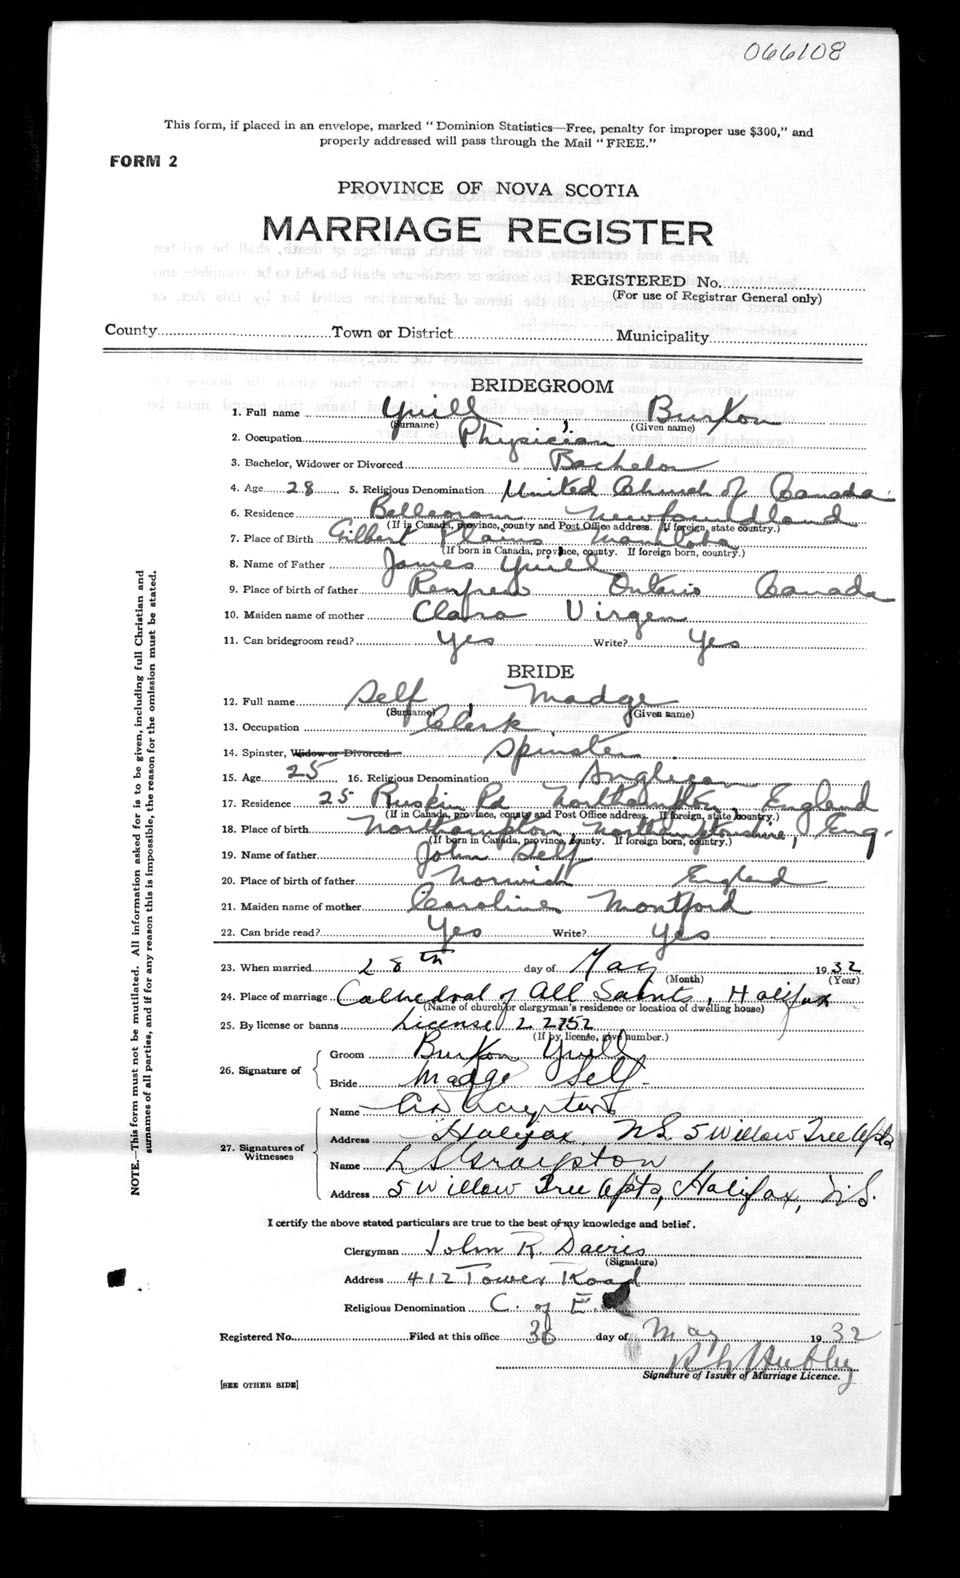 066108
This form, if placed in an envelope, marked "Dominion Statistics—Free, penalty for improper use $300," and
properly addressed will pass through the Mail "FREE."
FORM 2
PROVINCE OF NOVA SCOTIA
MARRIAGE REGISTER
REGISTERED No.
(For use of Registrar General only)
County Town or District Municipality
BRIDEGROOM
1. Full name Yuill Burton
(Surname) (Given name)
2. Occupation Physician
3. Bachelor, Widower or Divorced Bachelor
4. Age 28 5. Religious Denomination United Church of Canada
6. Residence Belleoram Newfoundland
(If in Canada, province, county and Post Office address. If foreign, state country.)
7. Place of Birth Gilbert Plains Manitoba
(If born in Canada, province, county. If foreign born, country.)
8. Name of Father James Yuill
9. Place of birth of father Renfrew Ontario Canada
10. Maiden name of mother Clara Virgen
11. Can bridegroom read? Yes Write? Yes
BRIDE
12. Full name Self Madge
(Surname) (Given name)
13. Occupation Clerk
14. Spinster, Widow or Divorced Spinster
15. Age 25 16. Religious Denomination Anglican
17. Residence 25 Ruskin Rd Northampton, England
(If in Canada, province, county and Post Office address. If foreign, state country.)
18. Place of birth Northampton, Northamptonshire, Eng.
(If born in Canada, province, county. If foreign born, country.)
19. Name of father John Self
20. Place of birth of father Norwich England
21. Maiden name of mother Caroline Montford
22. Can bride read? Yes Write? Yes
23. When married 28th day of May 1932
(Month) (Year)
24. Place of marriage Cathedral of All Saints, Halifax
(Name of church or clergyman's residence or location of dwelling house)
25. By license or banns License L 2752
(If by license, give number.)
26. Signature of
Groom Burton Yuill
Bride Madge Self
27. Signatures of Witnesses
Name
Address Halifax, N.S. 5 Willow Tree Apts
Name
Address 5 Willow Tree Apts, Halifax, N.S.
I certify the above stated particulars are true to the best of my knowledge and belief.
Clergyman John R. Davies
(Signature)
Address 412 Tower Road
Religious Denomination C. of E.
Registered No. Filed at this office 30 day of May 1932
Signature of Issuer of Marriage Licence.
[SEE OTHER SIDE]
NOTE.—This form must not be mutilated. All information asked for is to be given, including full Christian and
surnames of all parties, and if for any reason this is impossible, the reason for the omission must be stated.